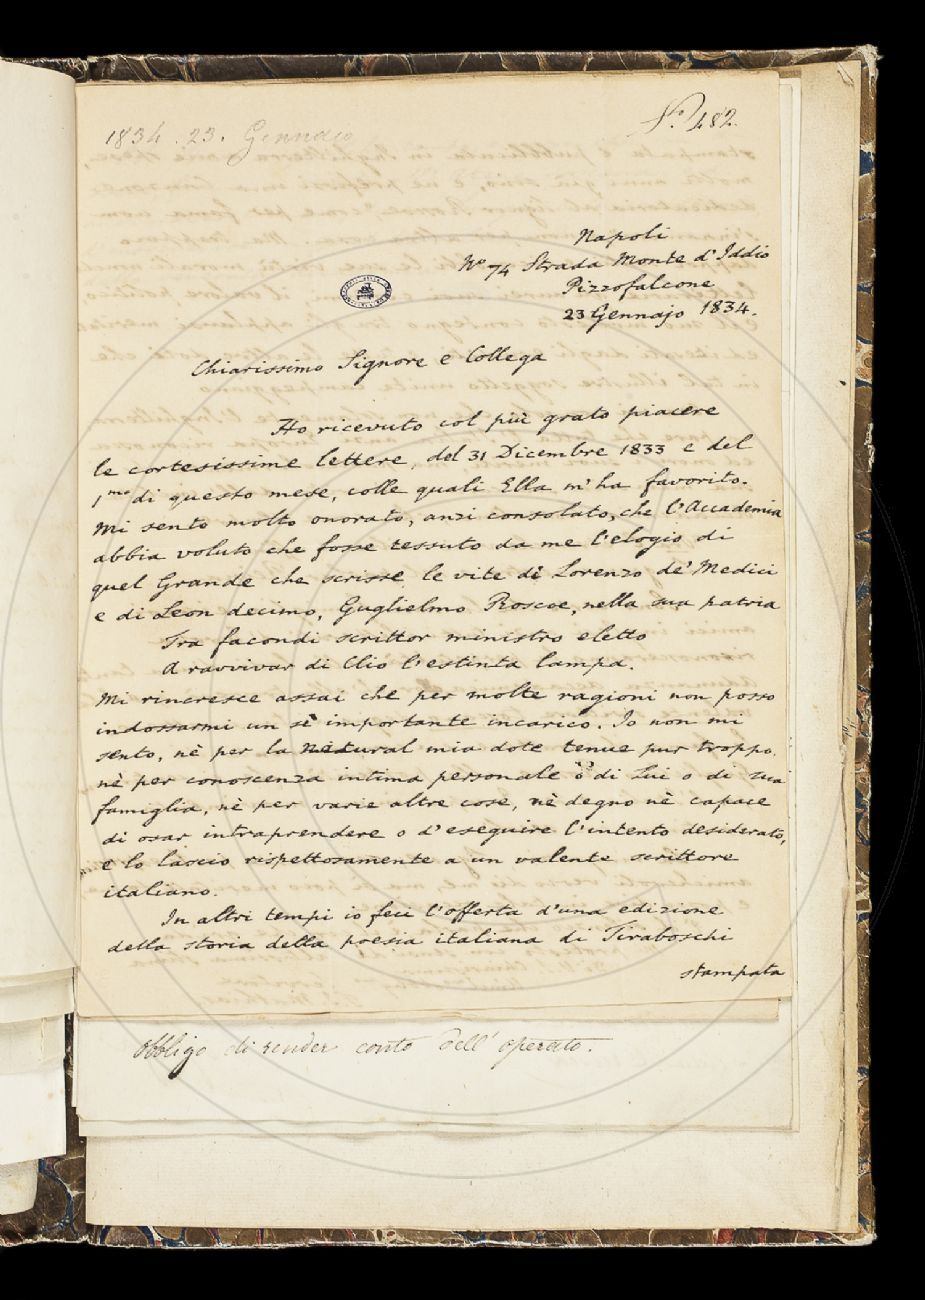 1834. 23. Gennaio
N.º 482.
Napoli
Nº 74 Strada Monte d'Iddio
Pizzofalcone
23 Gennajo 1834.
Chiarissimo Signore e Collega
Ho ricevuto col più grato piacere
le cortesissime lettere, del 31 Dicembre 1833 e del
1mo di questo mese, colle quali Ella m'ha favorito.
Mi sento molto onorato, anzi consolato, che l'Accademia
abbia voluto che fosse tessuto da me l'elogio di
quel Grande che scrisse le vite di Lorenzo de' Medici
e di Leon decimo, Guglielmo Roscoe, nella sua patria
Tra facondi scrittor ministro eletto
A ravvivar di Clio l'estinta lampa.
Mi rincresce assai che per molte ragioni non posso
indossarmi un sè importante incarico. Io non mi
sento, nè per la natural mia dote tenue pur troppo,
nè per conoscenza intima personale o di Lui o di sua
famiglia, nè per varie altre cose, nè degno nè capace
di osar intraprendere o d'eseguire l'intento desiderato,
e lo lascio rispettosamente a un valente scrittore
italiano.
In altri tempi io feci l'offerta d'una edizione
della storia della poesia italiana di Tiraboschi
stampata
obbligo di render conto dell' operato.